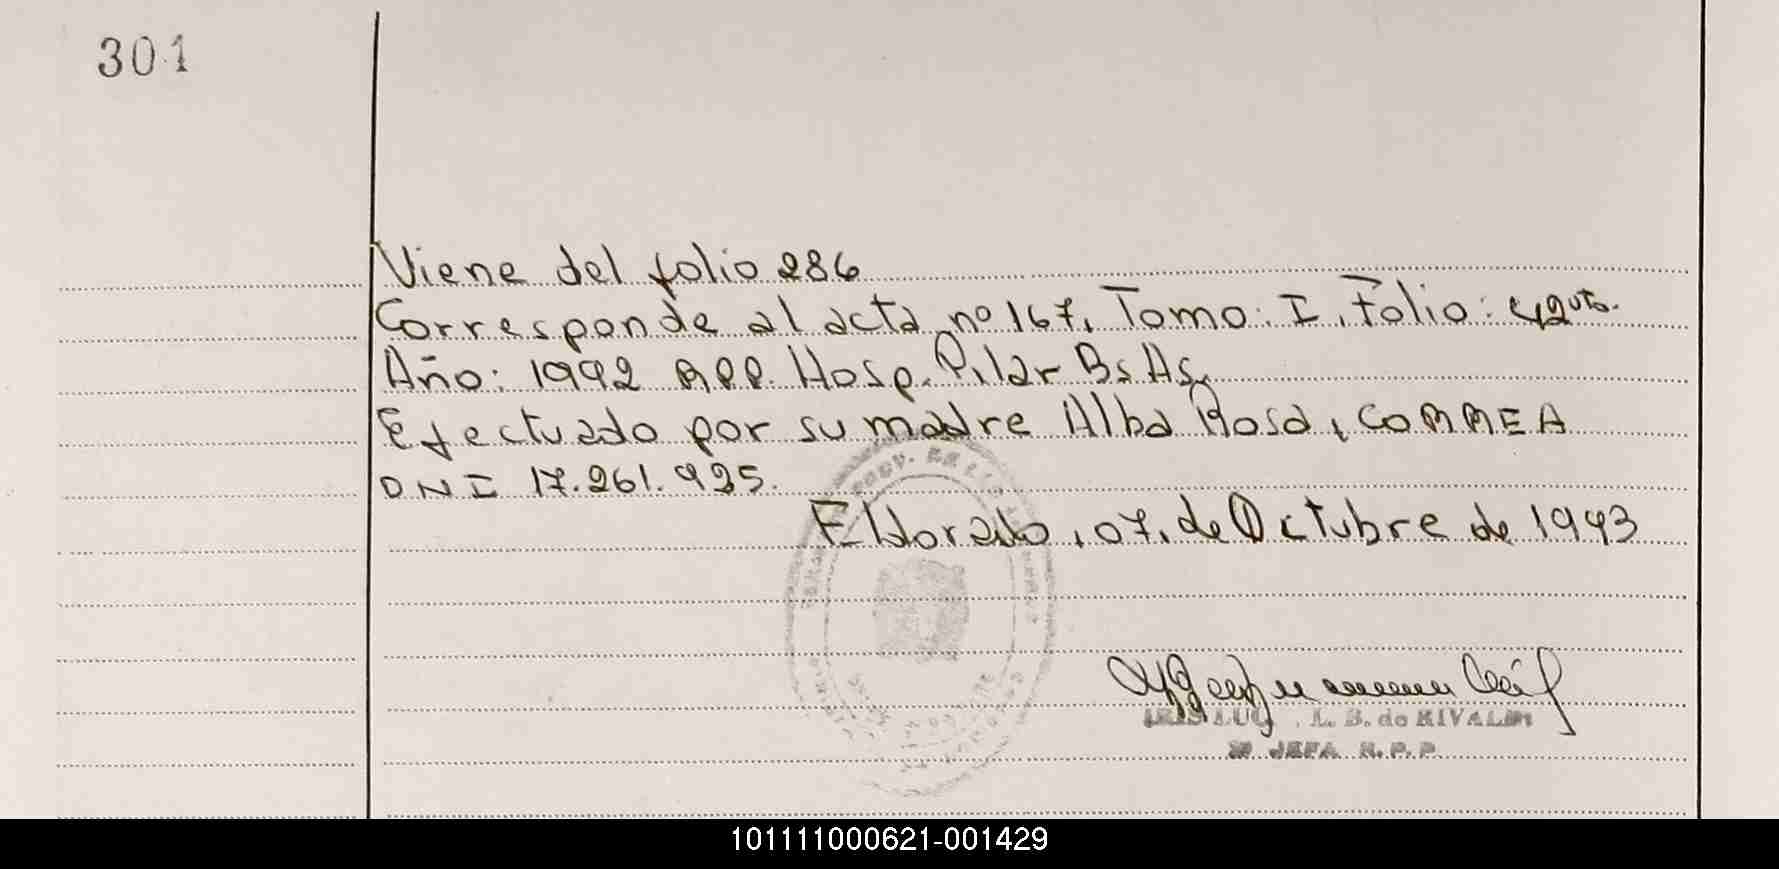 301
Viene del folio 286
Corresponde al acta nº 167, Tomo: I, Folio: 42vto.
Año: 1992 RPP. Hosp. Pilar Bs As,
Efectuado por su madre Alba Rosa, CORREA
DNI 17.261.925.
Eldorado, 07, de Octubre de 1993
L. B. de RIVALDI
JEFA R.P.P.
101111000621-001429